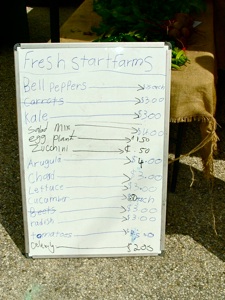 Fresh start farms
Bell Peppers
Carrots $3.00
Kale $3.00
Salad Mix $6.00
egg plant $1.50
Zucchini .50
Arugula $4.00
Chard $3.00
Lettuce
Cucumber each
Beets $3.00
radish $3.00
tomatoes
$2.00